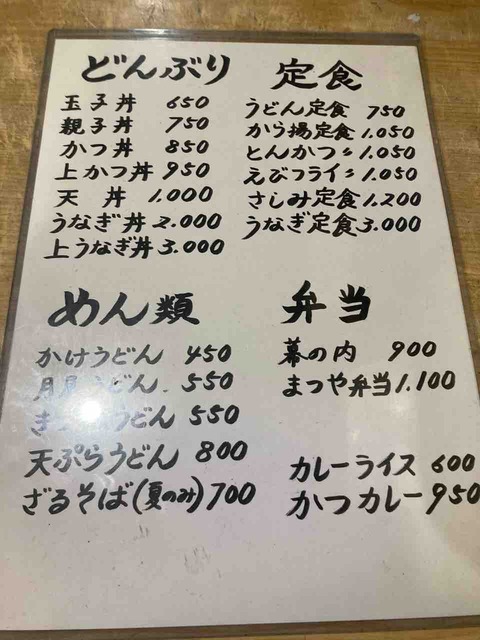 どんぶり
玉子丼 650
親子丼 750
かつ丼 850
上かつ丼 950
天丼 1.000
うなぎ丼 2.000
上うなぎ丼 3.000
定食
うどん定食 750
から揚定食 1.050
とんかつ〃 1.050
えびフライ〃 1.050
さしみ定食 1.200
うなぎ定食 3.000
めん類
かけうどん 450
月見うどん 550
うどん 550
天ぷらうどん 800
ざるそば(夏のみ) 700
弁当
幕の内 900
まつや弁当 1.100
カレーライス 600
かつカレー 950